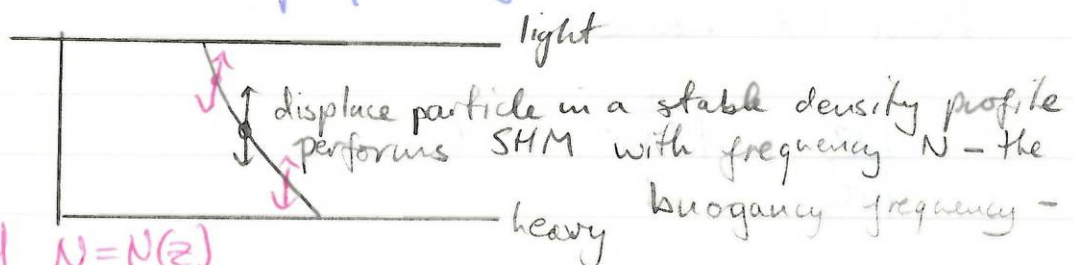 light
displace particle in a stable density profile
performs SHM with frequency N - the
buoyancy frequency -
heavy
N = N(z)